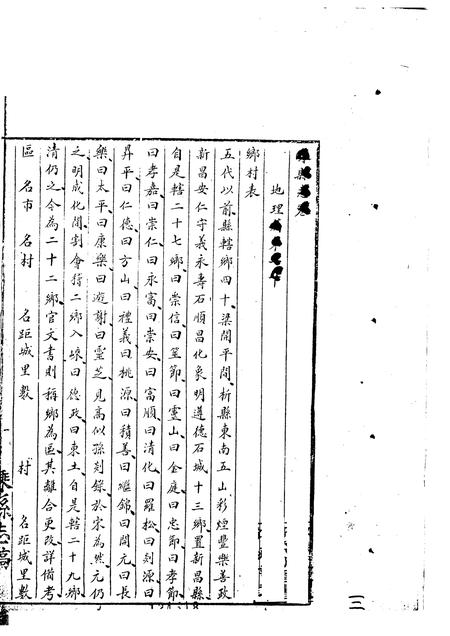 地理
鄉村表
五代以前縣轄鄉四十梁開平間析縣東南五山彩煙豐樂善政
新昌安仁守義永壽石順昌化象明遵德石城十三鄉置新昌縣
自是轄二十七鄉曰崇信曰筮節曰靈山曰金庭曰忠節曰孝節
曰孝嘉曰崇仁曰永富曰崇安曰富順曰清化曰羅松曰剡源曰
昇平曰仁德曰方山曰禮義曰桃源曰積善曰繼錦曰開元曰長
樂曰太平曰康樂曰遊謝曰靈芝見高似孫剡錄於宋為然元仍
之明成化間割會稽二鄉入嵊曰德政曰東土自是轄二十九鄉
清仍之今為二十二鄉官文書則稱鄉為區其離合更改詳備考
區名市名村名距城里數村名距城里數
嵊縣志稿
三